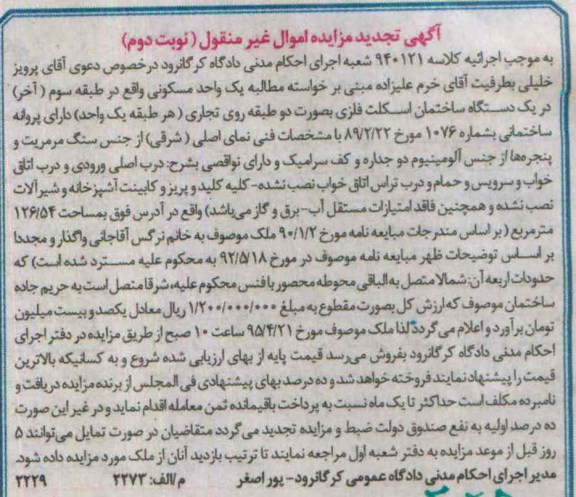 آگهی تجدید مزایده اموال غیر منقول ( نوبت دوم)
به موجب اجرائیه کلاسه ۹۴۰۱۲۱ شعبه اجرای احکام مدنی دادگاه کرگانرود درخصوص دعوی آقای پرویز
خلیلی بطرفیت آقای خرم علیزاده مبنی بر خواسته مطالبه یک واحد مسکونی واقع در طبقه سوم ( آخر)
در یک دستگاه ساختمان اسکلت فلزی بصورت دو طبقه روی تجاری ( هر طبقه یک واحد) دارای پروانه
ساختمانی بشماره ۱۰۷۶ مورخ ۸۹/۲/۲۲ با مشخصات فنی نمای اصلی ( شرقی) از جنس سنگ مرمریت و
پنجره‌ها از جنس آلومینیوم دو جداره و کف سرامیک و دارای نواقصی بشرح: درب اصلی ورودی و درب اتاق
خواب و سرویس و حمام و درب تراس اتاق خواب نصب نشده- کلیه کلید و پریز و کابینت آشپزخانه و شیرآلات
نصب نشده و همچنین فاقد امتیازات مستقل آب- برق و گاز می‌باشد) واقع در آدرس فوق بمساحت ۱۲۶/۵۴
مترمربع ( بر اساس مندرجات مبایعه نامه مورخ ۹۰/۱/۲ ملک موصوف به خانم نرگس آقاجانی واگذار و مجددا
بر اساس توضیحات ظهر مبایعه نامه موصوف در مورخ ۹۲/۵/۱۸ به محکوم علیه مسترد شده است) که
حدودات اربعه آن: شمالا متصل به الباقی محوطه محصور با فنس محکوم علیه، شرقا متصل است به حریم جاده
ساختمان موصوف که ارزش کل بصورت مقطوع به مبلغ ۱/۲۰۰/۰۰۰/۰۰۰ ریال معادل یکصدوبیست میلیون
تومان برآورد و اعلام می گردد لذا ملک موصوف مورخ ۹۵/۴/۲۱ ساعت ۱۰ صبح از طریق مزایده در دفتر اجرای
احکام مدنی دادگاه کرگانرود بفروش می‌رسد قیمت پایه از بهای ارزیابی شده شروع و به کسانیکه بالاترین
قیمت را پیشنهاد نمایند فروخته خواهد شد و ده درصد بهای پیشنهادی فی المجلس از برنده مزایده دریافت و
نامبرده مکلف است حداکثر تا یک ماه نسبت به پرداخت باقیمانده ثمن معامله اقدام نماید و در غیر این صورت
ده درصد اولیه به نفع صندوق دولت ضبط و مزایده تجدید می گردد متقاضیان در صورت تمایل می‌توانند ۵
روز قبل از موعد مزایده به دفتر شعبه اول مراجعه نمایند تا ترتیب بازدید آنان از ملک مورد مزایده داده شود.
مدیر اجرای احکام مدنی دادگاه عمومی کرگانرود- پور اصغر م/الف: ۲۲۷۳ ۲۲۲۹